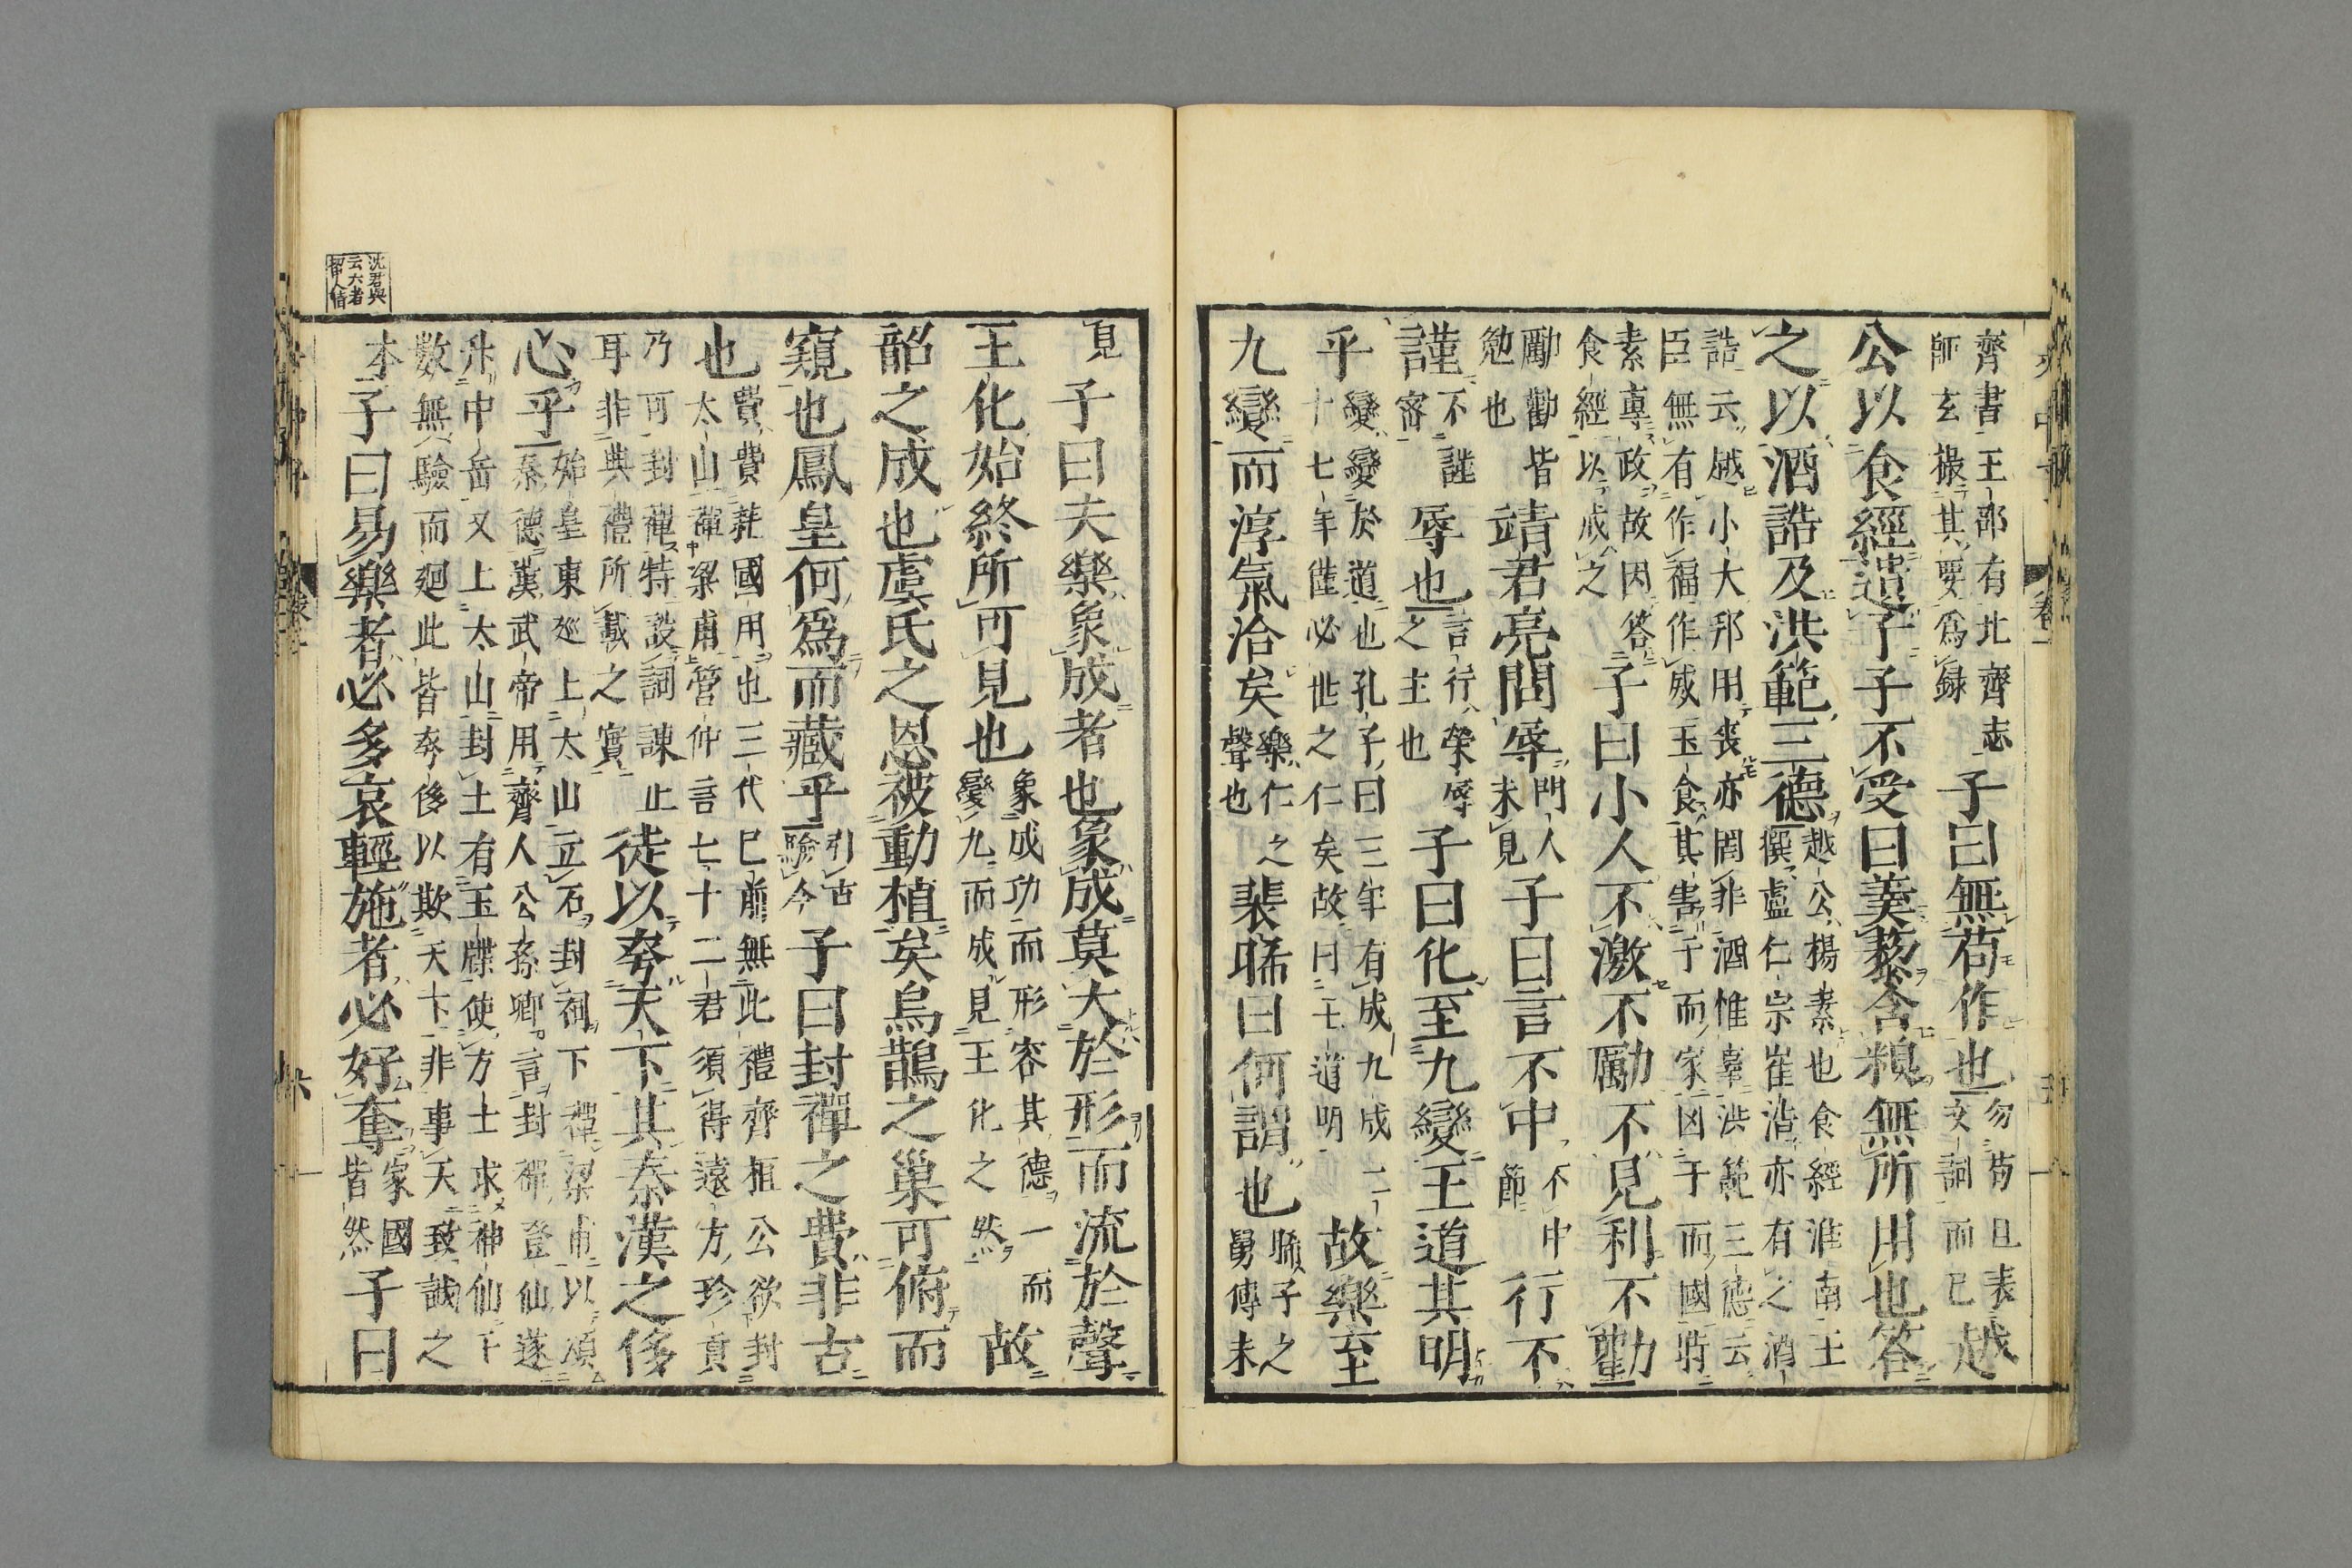 齊書王邵有北齊志
師玄撮其要爲錄
子曰無苟作也
勿苟且表
文詞而已
越
公以食經遺子子不受曰羹藜含糗無所用也答
之以酒誥及洪範三德
越公楊素也食經淮南王
撰盧仁宗崔浩亦有之酒
誥云越小大邦用喪亦罔非酒惟辜洪範三德云
臣無有作福作威玉食其害于而家凶于而國時
素專政故因答
食經以戒之
子曰小人不激不勵不見利不勸
勵勸皆
勉也
靖君亮問辱
門人
未見
子曰言不中
不中
節
行不
謹
不謹
審
辱也
言行榮辱
之主也
子曰化至九變王道其明
乎
變變於道也孔子曰三年有成九成二
十七年徃必世之仁矣故曰王道明
故樂至
九變而淳氣洽矣
樂仁之
聲也
裴晞曰何謂也
子之
舅傅未
見
子曰夫樂象成者也象成莫大於形而流於聲
王化始終所可見也
象成功而形容其德一而
變九而成見王化之然
故
韶之成也虞氏之恩被動植矣烏鵲之巢可俯而
窺也鳳皇何爲而藏乎
引古
驗今
子曰封禪之費非古
也
費費耗國用也三代已前無此禮齊桓公欲封
太山禪梁甫管仲言七十二君須得遠方珍貢
乃可封禪特設詞諫止
耳非典禮所載之實
徒以夸天下其秦漢之侈
心乎
始皇東廵上太山立石封祠下禪梁甫以頌
秦德漢武帝用齊人公孫卿言封禪登仙遂
升中岳又上太山封土有玉牒使方士求神仙千
數無驗而廻此皆夸侈以欺天下非事天致誠之
本
子曰易樂者必多哀輕施者必好奪
家國
皆然
子曰
沈君與
云六者
人情